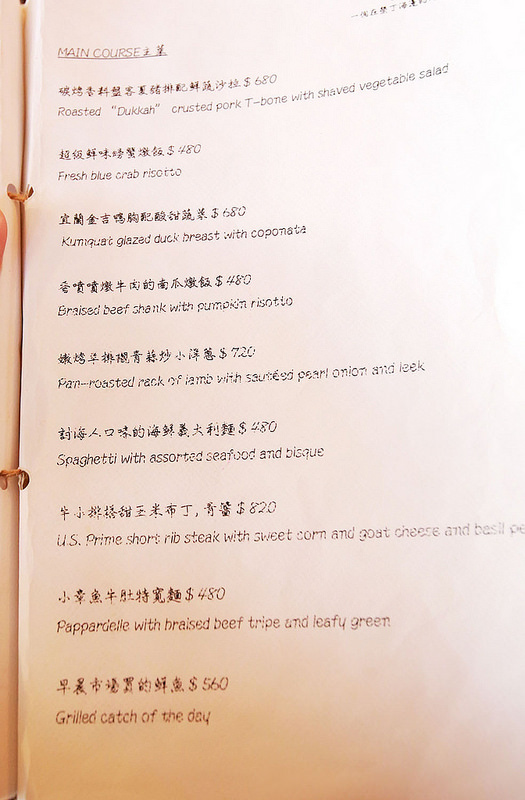 一個在墾丁海邊的
MAIN COURSE主菜
碳烤香料盤客夏豬排配鮮蔬沙拉 $ 680
Roasted "Dukkah" crusted pork T-bone with shaved vegetable salad
超級鮮味螃蟹燉飯 $ 480
Fresh blue crab risotto
宜蘭金吉鴨胸配酸甜蔬菜 $ 680
Kumquat glazed duck breast with coponata
香噴噴燉牛肉的南瓜燉飯 $ 480
Braised beef shank with pumpkin risotto
嫩烤羊排襯青蒜炒小洋蔥 $ 720
Pan-roasted rack of lamb with sautéed pearl onion and leek
討海人口味的海鮮義大利麵 $ 480
Spaghetti with assorted seafood and bisque
牛小排搭甜玉米布丁, 青醬 $ 820
U.S. Prime short rib steak with sweet corn and goat cheese and basil pe
小章魚牛肚特寬麵 $ 480
Pappardelle with braised beef tripe and leafy green
早晨市場買的鮮魚 $ 560
Grilled catch of the day